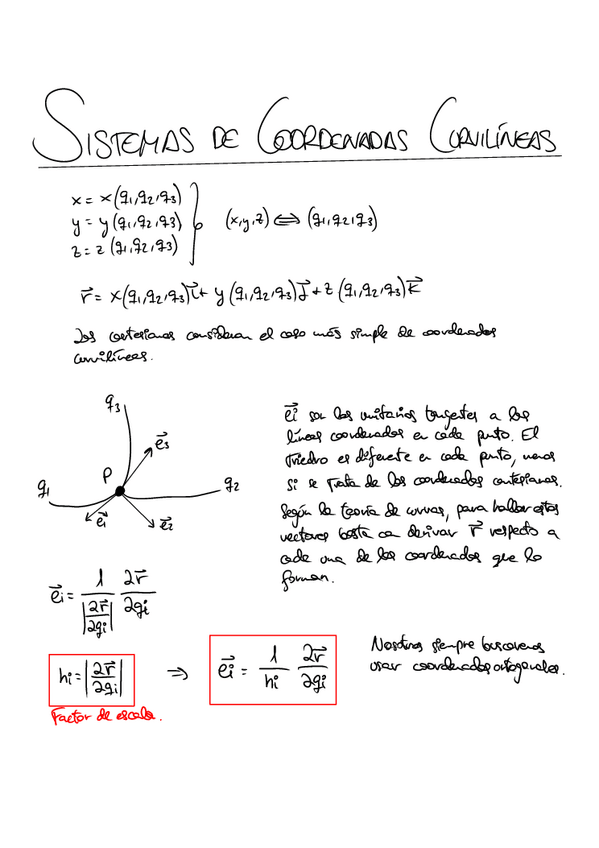 SISTEMAS DE COORDENADAS CURVILÍNEAS
x = x(q1,q2,q3)
y = y(q1,q2,q3)
z = z(q1,q2,q3)
(x,y,z) ⟺ (q1,q2,q3)
r⃗ = x(q1,q2,q3)i⃗ + y(q1,q2,q3)j⃗ + z(q1,q2,q3)k⃗
Las cartesianas consideran el caso más simple de coordenadas
curvilíneas.
q3
e⃗3
P
q1
q2
e⃗1
e⃗2
e⃗i son los unitarios tangentes a las
líneas coordenadas en cada punto. El
triedro es diferente en cada punto, menos
si se trata de las coordenadas cartesianas.
Según la teoría de curvas, para hallar estos
vectores basta con derivar r⃗ respecto a
cada una de las coordenadas que lo
forman.
e⃗i = 1/|∂r⃗/∂qi| ∂r⃗/∂qi
hi = |∂r⃗/∂qi| ⇒ e⃗i = 1/hi ∂r⃗/∂qi
Factor de escala.
Nosotros siempre buscaremos
usar coordenadas ortogonales.